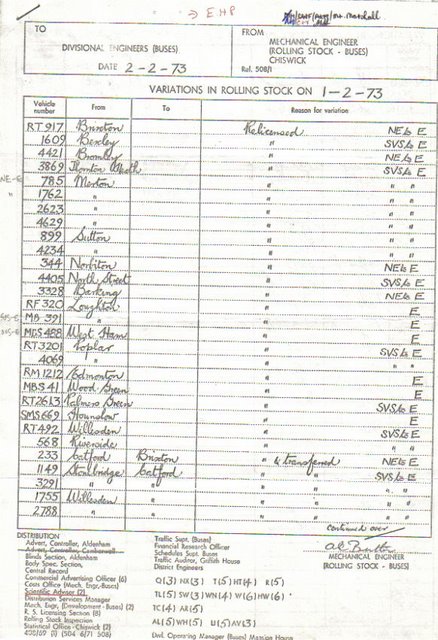 → EHP
TO
DIVISIONAL ENGINEERS (BUSES)
DATE 2-2-73
FROM
MECHANICAL ENGINEER
(ROLLING STOCK - BUSES)
CHISWICK
Ref. 508/1
VARIATIONS IN ROLLING STOCK ON 1-2-73
Vehicle number From To Reason for variation
RT 917 Brixton Relicensed NE to E
1609 Bexley " SVS to E
4421 Bromley " NE to E
3869 Thornton Heath " SVS to E
NE-E 785 Merton " " "
" 1762 " " " "
2623 " " " "
4629 " " " "
899 Sutton " " "
4234 " " " "
344 Norbiton " NE to E
4405 North Street " SVS to E
3328 Barking " NE to E
RF 320 Loughton " E
MB 391 " " E
MBS 488 West Ham " E
RT 3201 Poplar " SVS to E
4069 " " " "
RM 1212 Edmonton " E
MBS 41 Wood Green " E
RT 2613 Palmers Green " SVS to E
SMS 669 Hounslow " E
RT 492 Willesden " SVS to E
568 Riverside " "
233 Catford Brixton " & transferred NE to E
1149 Stonebridge Catford " " SVS to E
3291 " " " " " "
1755 Willesden " " " " "
2788 " " " " " "
continued over
DISTRIBUTION
Advert. Controller, Aldenham
Advert. Controller, Camberwell
Blinds Section, Aldenham
Body Spec. Section,
Central Record
Commercial Advertising Officer (6)
Costs Office (Mech. Engr.-Buses)
Scientific Adviser (2)
Distribution Services Manager
Mech. Engr. (Development - Buses) (2)
R. S. Licensing Section (8)
Rolling Stock Inspection
Statistical Office - Chiswick (2)
Traffic Supt. (Buses)
Financial Research Officer
Schedules Supt. Buses
Traffic Auditor, Griffith House
District Engineers
Q(3) NX(3) T(5) HT(4) R(5)
TL(5) SW(3) WN(4) W(6) HW(6)
TC(4) AR(5)
AL(5) WH(5) U(5) AV(3)
Divl. Operating Manager (Buses) Mansion House
MECHANICAL ENGINEER
(ROLLING STOCK - BUSES)